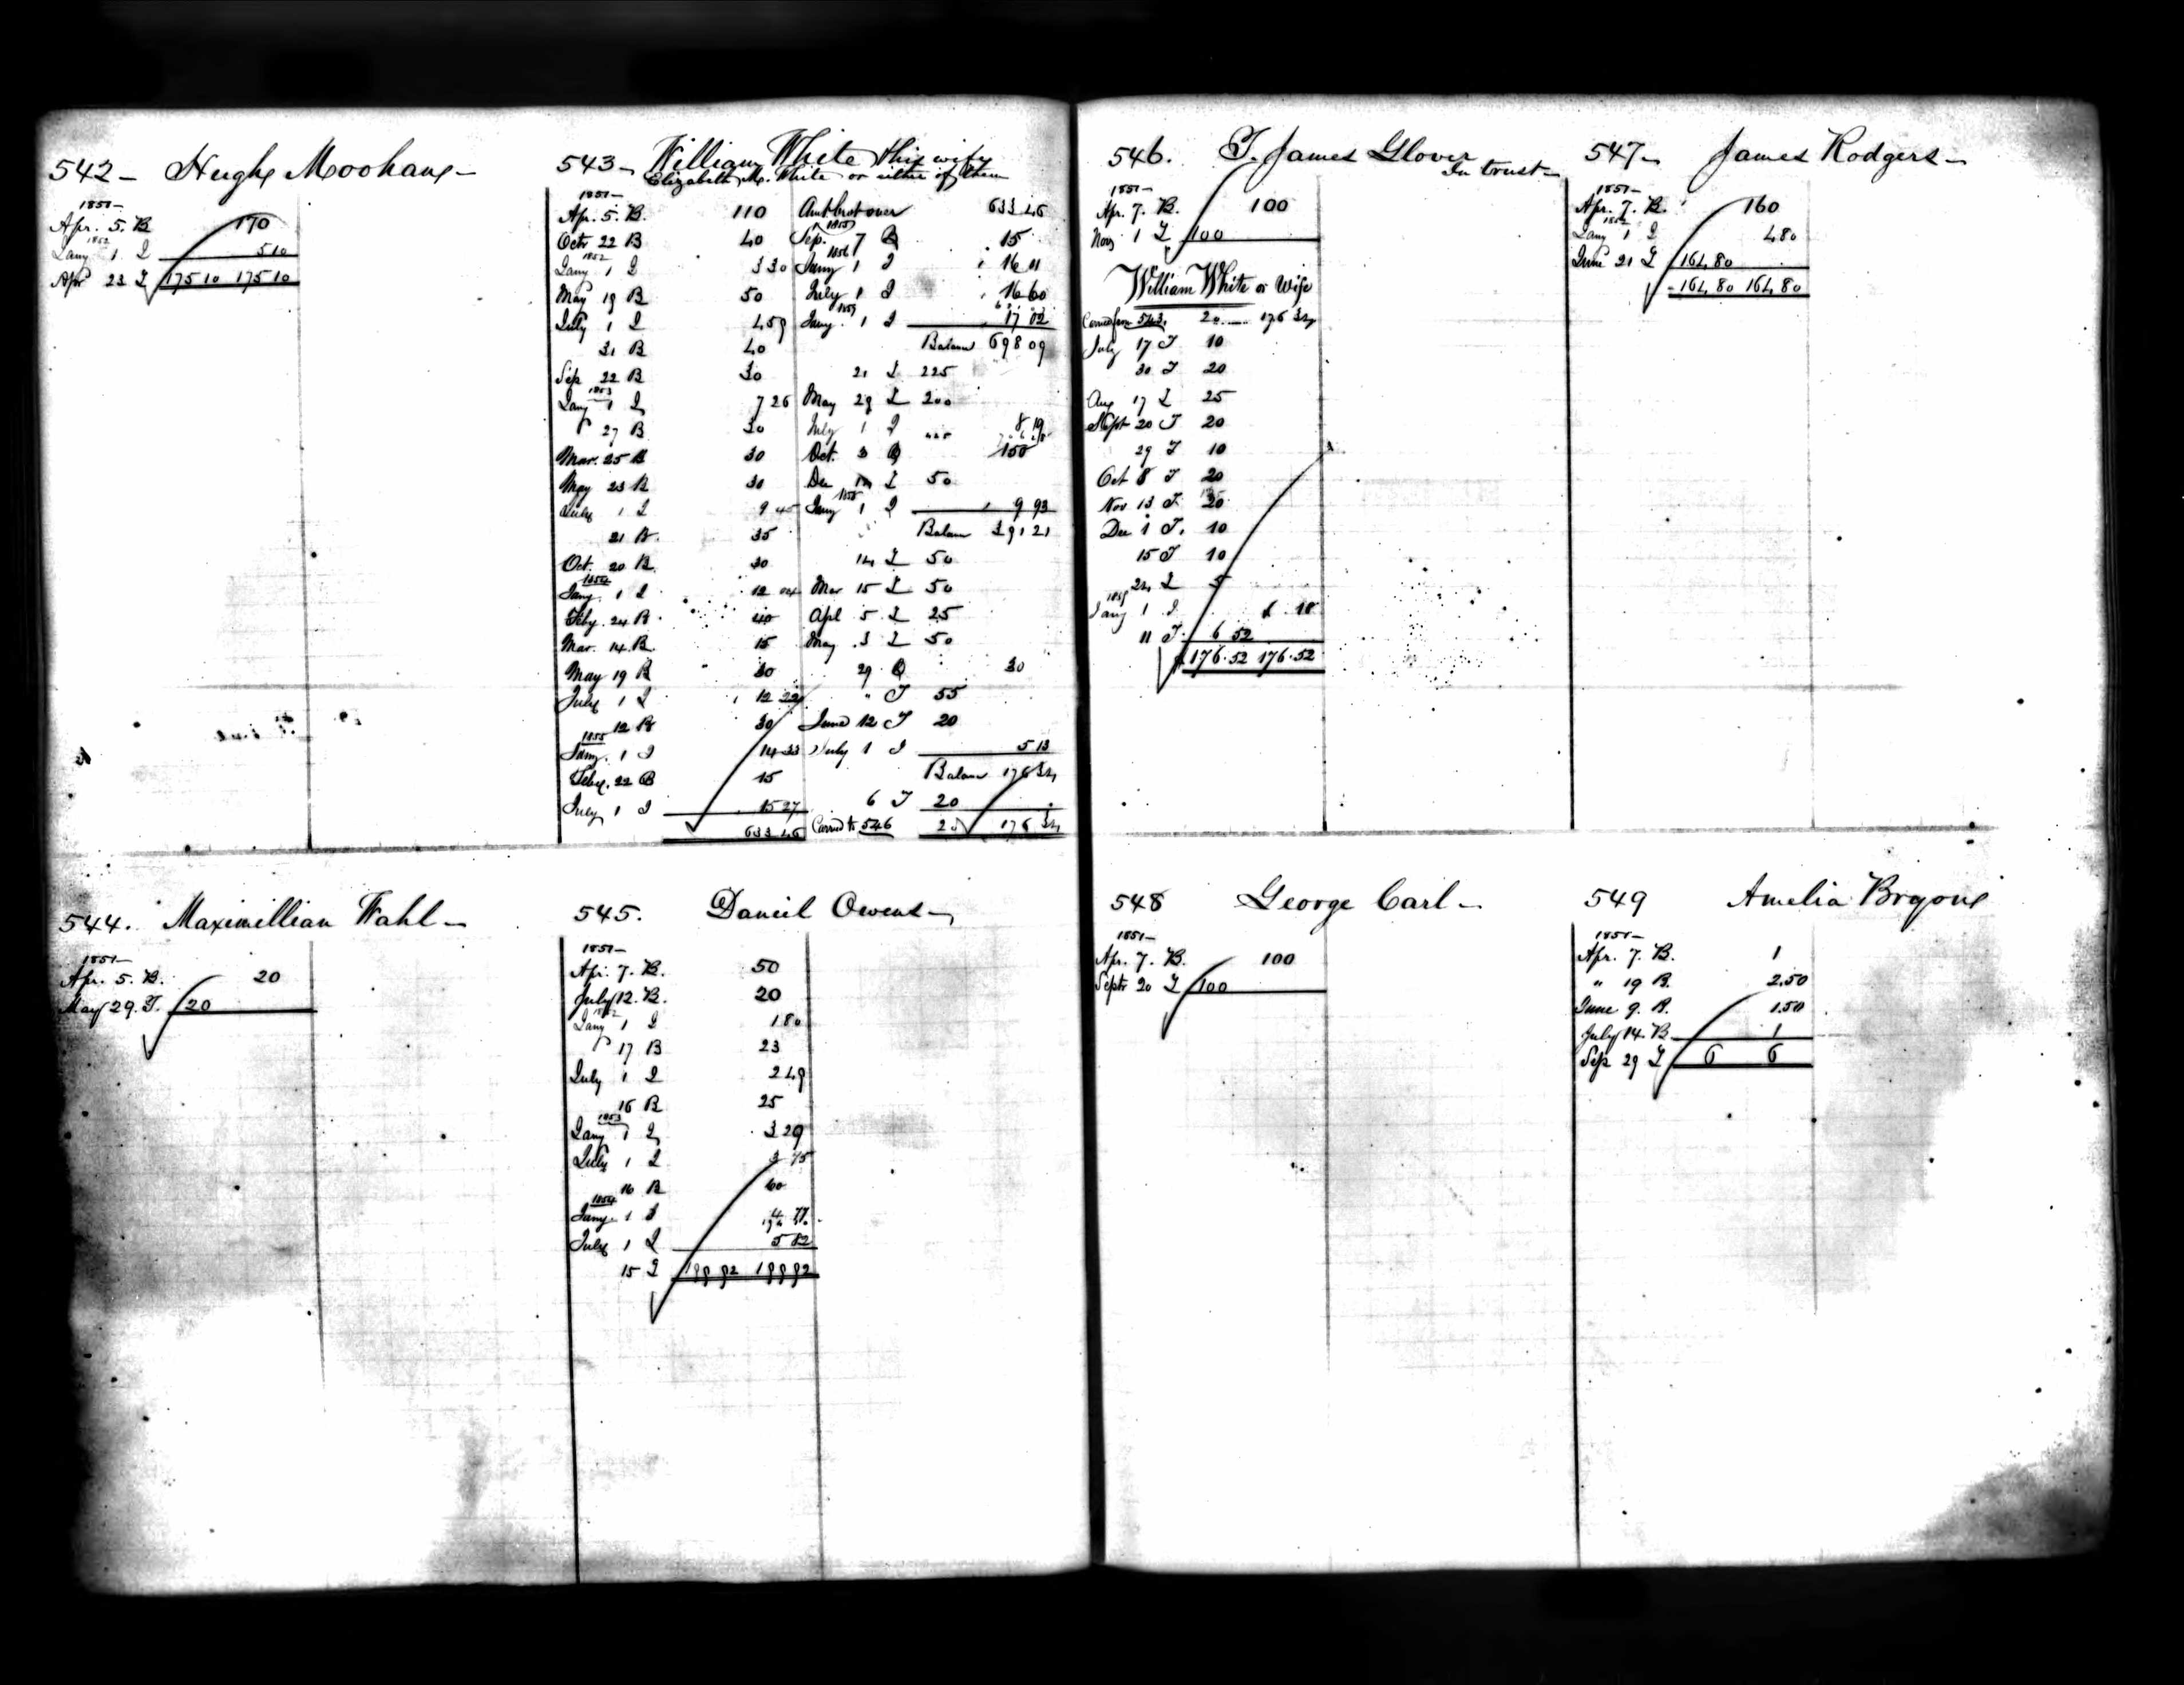 542 - Hugh Moohane -
1851 -
Apr. 5. B 170
1852
Jany 1 I 5 10
Apr 23 I 175 10 175 10
543 - William White & his wife
Elizabeth M. White or either of them
1851 -
Apr. 5. B. 110
Octr 22 B 40
1852
Jany 1 I 3 30
May 19 B 50
July 1 I 4 59
31 B 40
Sep 22 B 30
1853
Jany 1 I 7 26
" 27 B 30
Mar. 25 B 30
May 23 B 30
July 1 I 9 45
21 B. 35
Oct. 20 B. 30
1854
Jany. 1 I 12
Feby. 24 B. 40
Mar. 14 B. 15
May 19 B 30
July 1 I 12 22
12 B 30
1855
Jany. 1 I 14 33
Feby. 22 B 15
July 1 I 15 27
633 46
Amt brot over 633 46
1855
Sep. 7 B 15
1856
Jany 1 I 16 11
July 1 I 16 60
Jany. 1 I 17 02
Balance 698 09
21 I 225
May 29 I 200
July 1 I 8 19
Oct. 3 B 150
Dec I 50
1858
Jany 1 I 9 93
Balance 391 21
14 I 50
Mar 15 I 50
Apl 5 I 25
May 3 I 50
29 B 30
" T 55
June 12 T 20
July 1 I 5 13
Balance 176 34
6 T 20
Carried to 546 20 176 34
544. Maximillian Wahl -
1851 -
Apr. 5. B. 20
May 29. T. 20
545. Daniel Owens -
1851 -
Apr. 7. B. 50
July 12. B. 20
1852
Jany 1 I 1 80
" 17 B 23
July 1 I 2 49
16 B 25
1853
Jany 1 I 3 29
July 1 I 3 75
16 B 60
1854
Jany. 1 I 4 77
July 1 I 5 82
15 I 199 92 199 92
546. T. James Glover
In trust -
1851 -
Apr. 7. B. 100
Nov 1 I 100
William White or Wife
Carried from 543. 20 176 34
July 17 T 10
30 T 20
Aug 17 I 25
Sept 20 T 20
29 T 10
Oct 8 T 20
Nov 13 T 20
Dec 1 T. 10
15 T 10
24 I 5
1859
Jany 1 I 18
11 T. 6 52
176.52 176.52
547 - James Rodgers -
1851 -
Apr. 7. B. 160
1852
Jany 1 I 4 80
June 21 I 164 80
164 80 164 80
548 George Carl -
1851 -
Apr. 7. B. 100
Septr 20 I 100
549 Amelia Bryone
1851 -
Apr. 7. B. 1
" 19 B. 2.50
June 9. B. 1.50
July 14. B 1
Sep 29 I 6 6